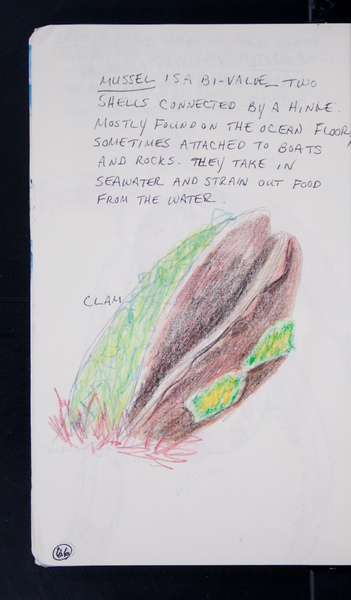 MUSSEL IS A BI-VALVE TWO
SHELLS CONNECTED BY A HINGE.
MOSTLY FOUND ON THE OCEAN FLOOR,
SOMETIMES ATTACHED TO BOATS
AND ROCKS. THEY TAKE IN
SEAWATER AND STRAIN OUT FOOD
FROM THE WATER.
CLAM
66